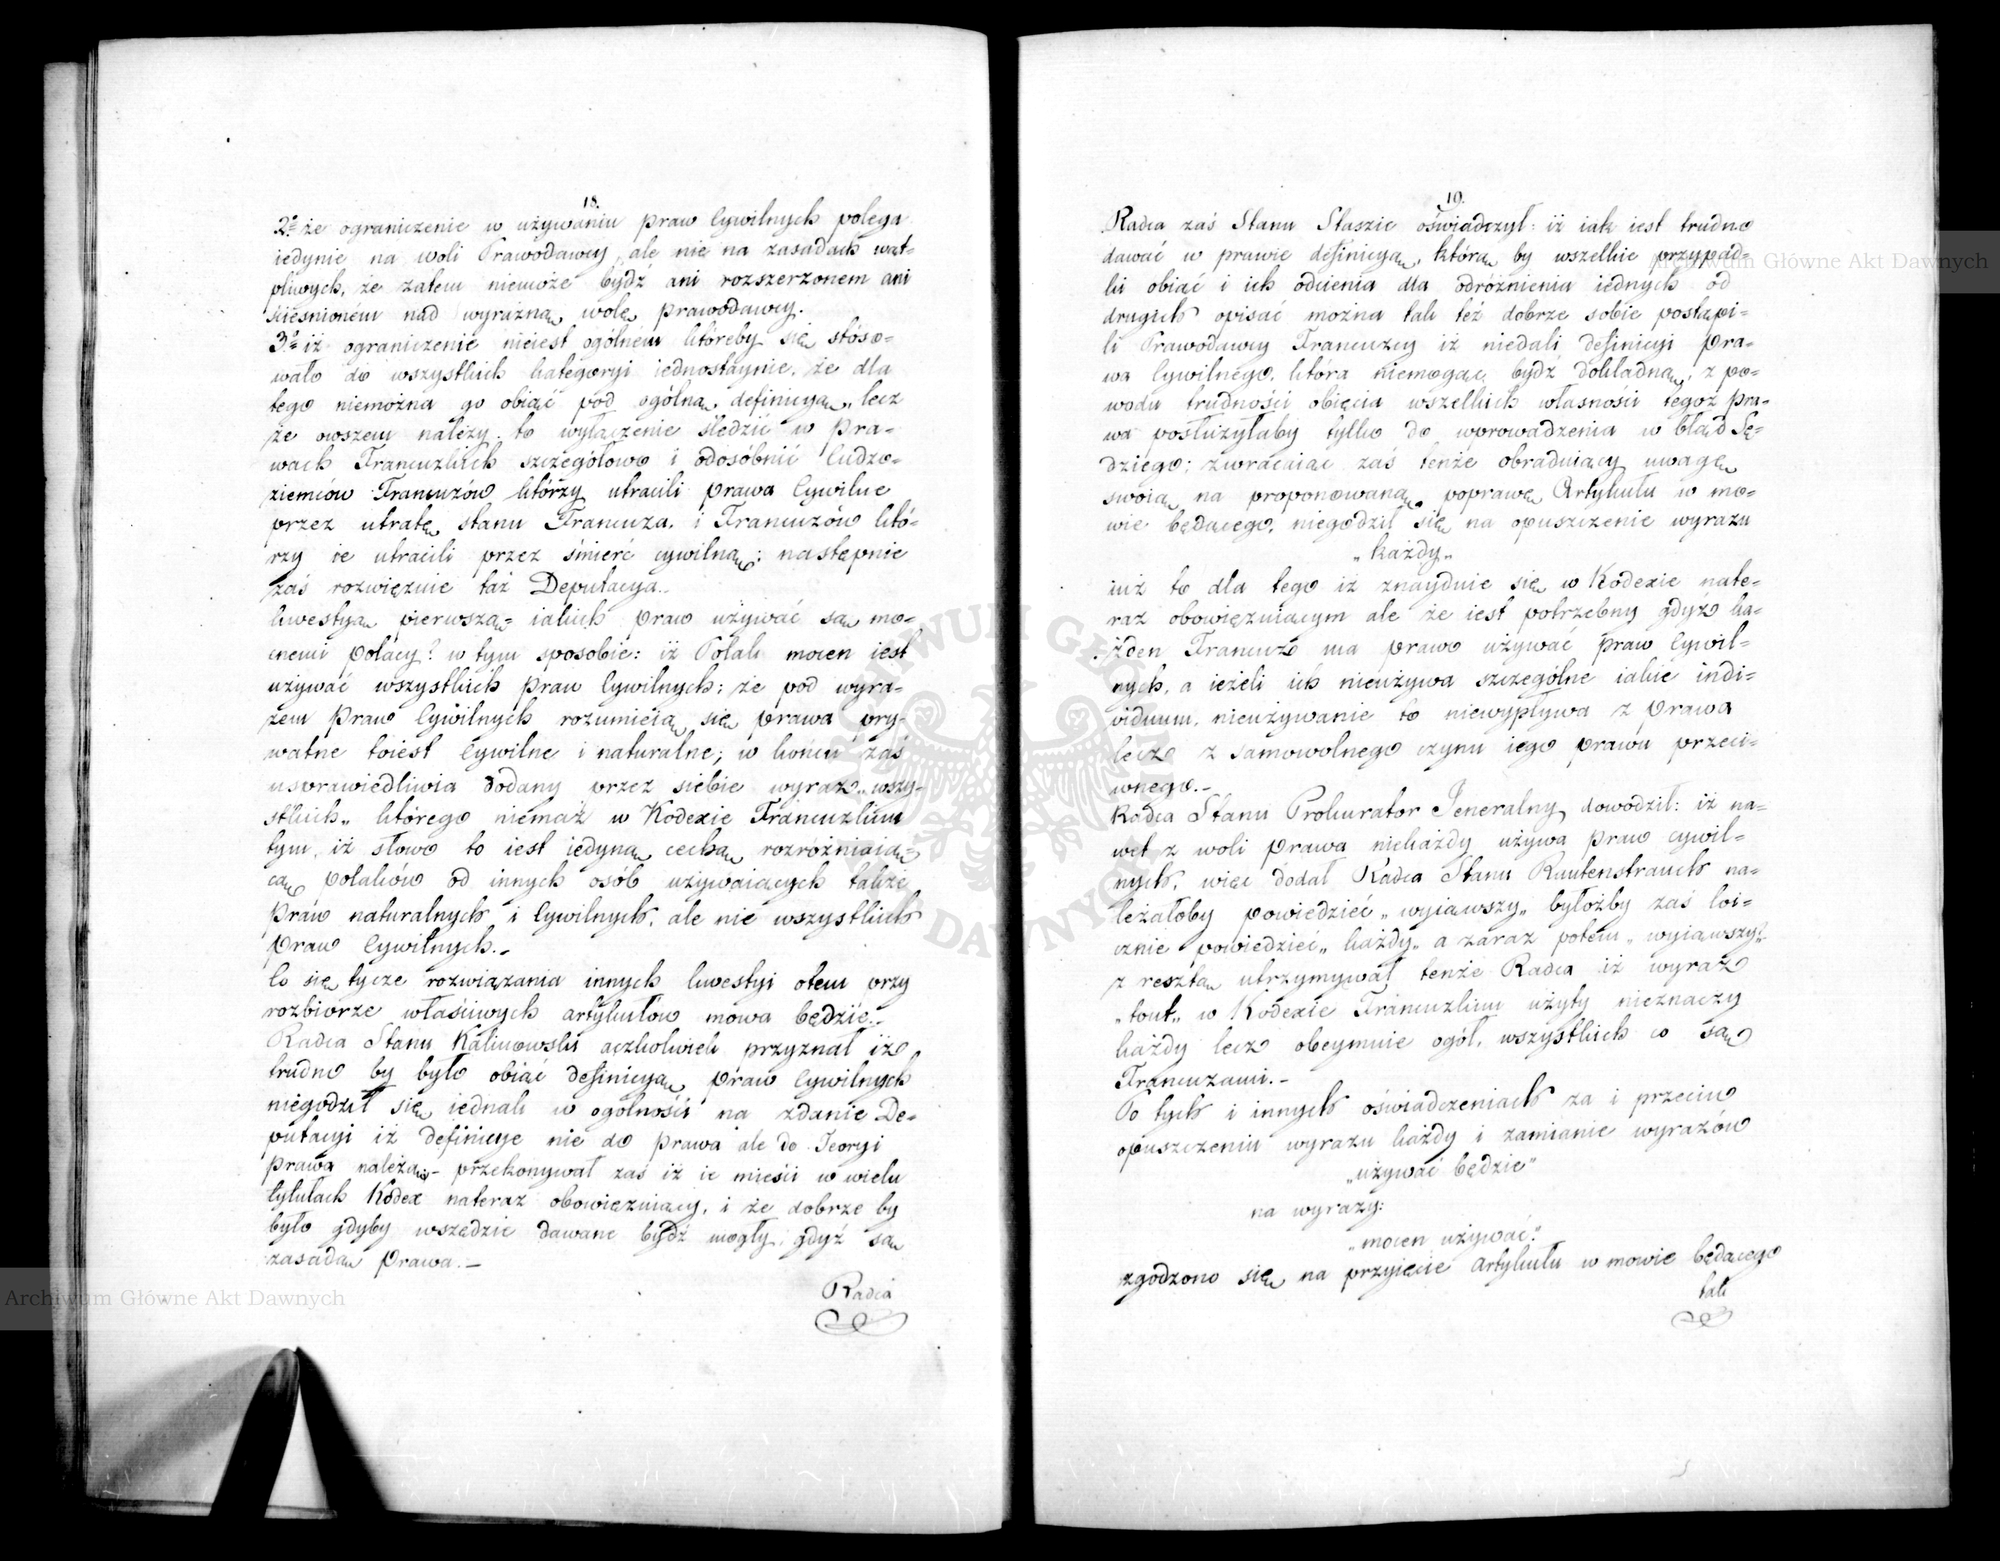 18.
2re że ograniczenie w używaniu praw Cywilnych polega
iedynie na woli Prawodawcy, ale nie na zasadach wąt=
pliwych, że zatem niemoże bydź ani rozszerzonem ani
ścieśnionem nad wyraźną wolę prawodawcy.
3e iż ograniczenie nieiest ogólnem któreby się stóso=
wało do wszystkich kategoryi iednostaynie, że dla
tego niemożna go obiąć pód ogólną definicyą, lecz
że owszem należy to wyłączenie śledzić w pra=
wach Francuzkich szczegółowo i odosóbnić Cudzo=
ziemców Francuzów którzy utracili prawa Cywilne
przez utratę stanu Francuza, i Francuzów któ=
rzy ie utracili przez śmierć cywilną; następnie
zaś rozwięzuie taż Deputacya..
kwestyą pierwszą= iakich praw używać są mo=
cnemi polacy? w tym sposobie: iż Polak mocen iest
używać wszystkich praw Cywilnych; że pod wyra=
zem praw Cywilnych rozumieią się prawa pry=
watne toiest Cywilne i naturalne; w końcu zaś
usprawiedliwia dodany przez siebie wyraz „wszy=
stkich„ którego niemasz w Kodexie Francuzkim
tym, iż słowo to iest iedyną cechą rozróżniaią=
cą polaków od innych osób używaiących także
praw naturalnych i Cywilnych, ale nie wszystkich
praw Cywilnych.–
Co się tycze rozwiązania innych kwestyi otem przy
rozbiorze właściwych artykułów mowa będzie..
Radca Stanu Kalinowski aczkolwiek przyznał iż
trudno by było obiąć definicyą praw Cywilnych
niegodził się iednak w ogólności na zdanie De=
putacyi iż definicye nie do prawa ale do Teoryi
prawa należą– przekonywał zaś iż ie mieści w wielu
tytułach Kodex nateraz obowięzuiący, i że dobrze by
było gdyby wszędzie dawane bydź mogły, gdyż są
zasadą prawa.–
Radca
19.
Radca zaś Stanu Staszic oświadczył: iż iak iest trudno
dawać w prawie definicyą, którą by wszelkie przypad=
ki obiąć i ich odcienia dla odróżnienia iednych od
drugich opisać można tak też dobrze sobie postąpi=
li Prawodawcy Francuzcy iż niedali definicyi pra=
wa Cywilnego, która niemogąc bydź dokładną, z po=
wodu trudności obięcia wszelkich własności tegoż pra=
wa posłużyłaby tylko do wprowadzenia w błąd Sę=
dziego; zwracaiąc zaś tenże obraduiący uwagę
swoią na proponowaną poprawę Artykułu w mo=
wie będącego, niegodził się na opuszczenie wyrazu
„każdy„
iuż to dla tego iż znayduie się w Kodexie nate=
raz obowięzuiącym ale że iest potrzebny gdyż ka=
żden Francuz ma prawo używać praw Cywil=
nych, a ieżeli ich nieużywa szczególne iakie indi=
viduum, nieużywanie to niewypływa z prawa
lecz z samowolnego czynu iego prawu przeci=
wnego.–
Radca Stanu Prokurator Jeneralny dowodził: iż na=
wet z woli prawa niekażdy używa praw cywil=
nych, więc dodał Radca Stanu Rautenstrauch na=
leżałoby powiedzieć „wyiąwszy„ byłożby zaś loi=
cznie powiedzieć „każdy„ a zaraz potem „wyiąwszy?
z resztą utrzymywał tenże Radca iż wyraz
„tout„ w Kodexie Francuzkim użyty nieznaczy
każdy lecz obeymuie ogół, wszystkich co są
Francuzami.–
Po tych i innych oświadczeniach za i przeciw
opuszczeniu wyrazu każdy i zamianie wyrazów
„używać będzie”
na wyrazy:
„mocen używać”
zgodzono się na przyięcie Artykułu w mowie będącego
tak
Archiwum Główne Akt Dawnych
Archiwum Główne Akt Dawnych
ARCHIWUM GŁÓWNE AKT DAWNYCH